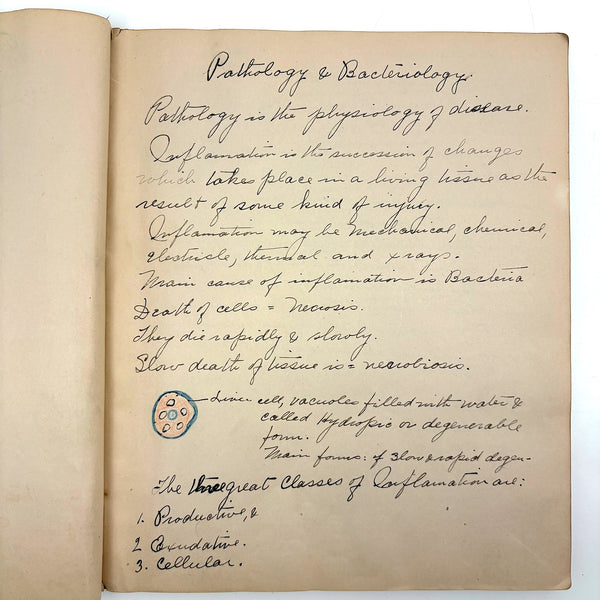 Pathology & Bacteriology.
Pathology is the physiology of disease.
Inflamation is the succession of changes
which takes place in a living tissue as the
result of some kind of injury.
Inflamation may be Mechanical, chemical,
electricle, thermal and x rays.
Main cause of inflamation is Bacteria
Death of cells = Necrosis.
They die rapidly & slowly.
Slow death of tissue is = necrobiosis.
Liver cell, vacuoles filled with water &
called Hydropic or degenerable
form.
Main forms: of slow & rapid degen-
The three great classes of Inflamation are:
1. Productive, &
2 Exudative.
3. Cellular.